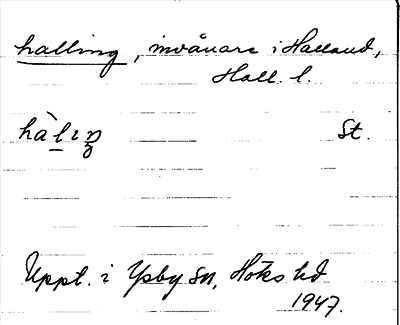 halling, invånare i Halland,
Hall. l.
hàlıŋ St.
Uppt. i Ysby sn, Höks hd
1947.